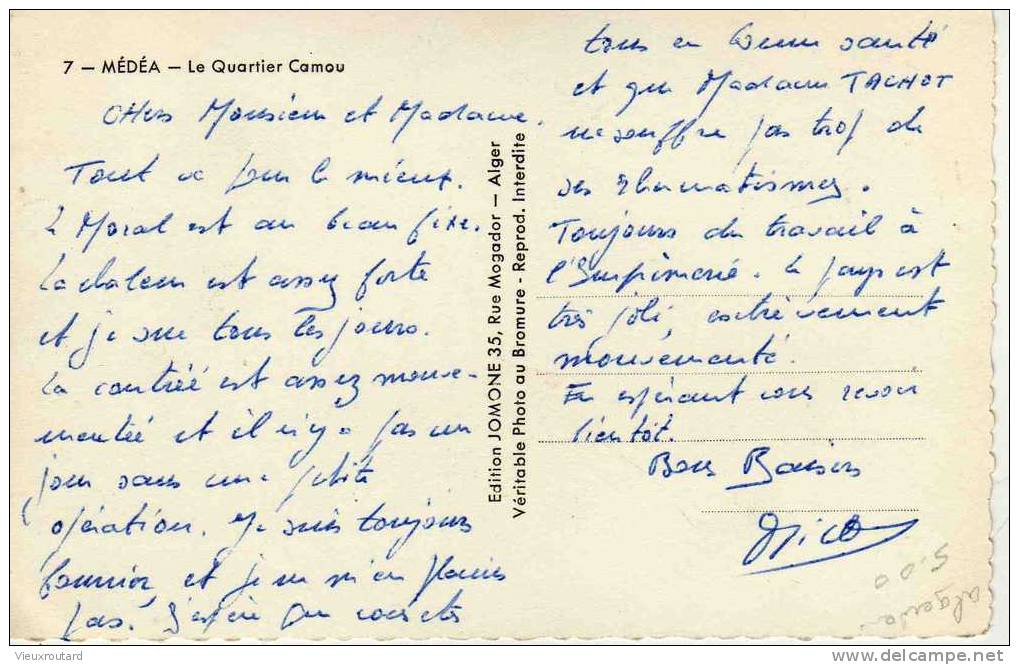 7 — MÉDÉA — Le Quartier Camou
Chers Monsieur et Madame,
Tout va pour le mieux.
Le Moral est au beau fixe.
La chaleur est assez forte
et je sue tous les jours.
La contrée est assez mouve-
mentée et il n'y a pas un
jour sans une petite
opération. Je suis toujours
fourrier, et je ne m'en plains
pas. J'espère que vous êtes
Edition JOMONE 35, Rue Mogador — Alger
Véritable Photo au Bromure - Reprod. Interdite
tous en bonne santé
et que Madame TACHOT
ne souffre pas trop de
ses rhumatismes.
Toujours du travail à
l'Imprimerie. Le pays est
très joli, extrêvement
mouvementé.
En espérant vous revoir
bientôt.
Bons Baisers
5.00
algerie
Vieuxroutard
delcampe.net